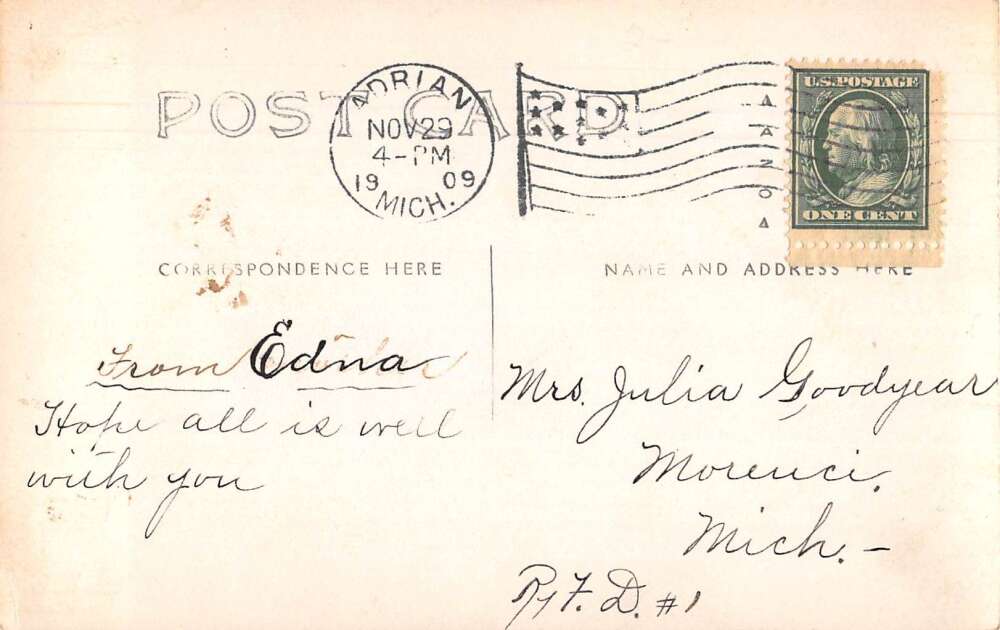 POST CARD
ADRIAN
NOV 29
4-PM
19 09
MICH.
U.S. POSTAGE
ONE CENT
CORRESPONDENCE HERE
NAME AND ADDRESS HERE
From Edna
Hope all is well
with you
Mrs. Julia Goodyear
Morenci.
Mich. –
R.F.D. #1